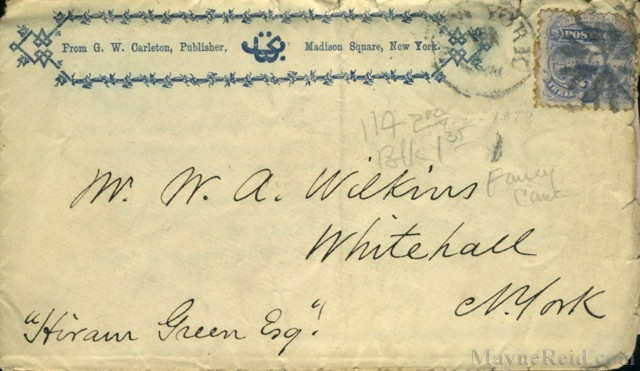 From G. W. Carleton, Publisher, Madison Square, New York.
POSTAGE
114
1870
Blk
Fancy
Mr. W. A. Wilkins
Whitehall
N. York
"Hiram Green Esq".
MayneReid.com